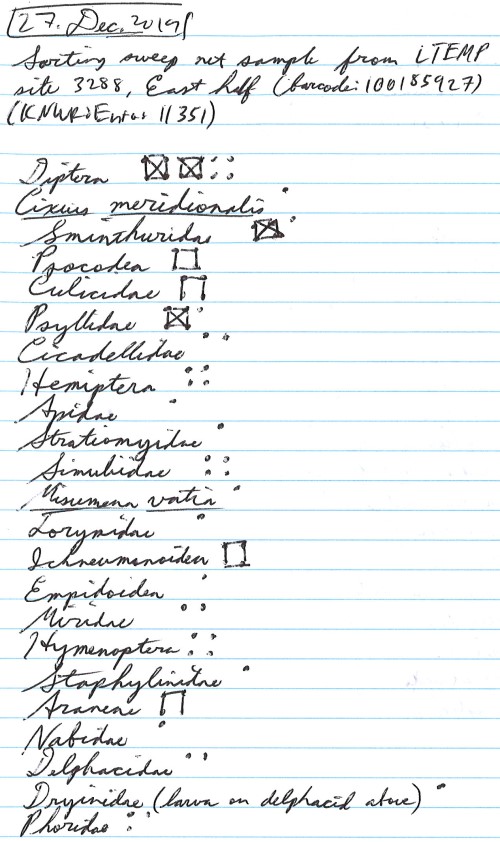 27. Dec. 2019
Sorting sweep net sample from LTEMP
site 3288, East half (barcode: 100185927)
(KNWR:Ento: 11351)
Diptera
Cixius meridionalis
Sminthuridae
Psocodea
Culicidae
Psyllidae
Cicadellidae
Hemiptera
Apidae
Stratiomyidae
Simuliidae
Misumena vatia
Ichneumonoidea
Empidoidea
Miridae
Hymenoptera
Staphylinidae
Araneae
Nabidae
Delphacidae
Dryinidae (larva on delphacid above)
Phoridae